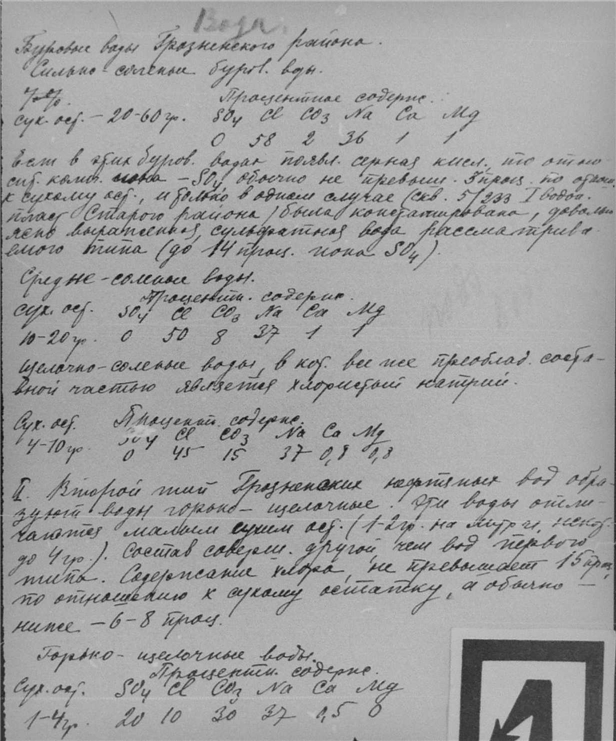 Вода.
Буровые воды Грозненского района.
Сильно соленые буров. воды.
Процентное содерж.
сух. ост. – 20-60 гр. SO4 Cl CO3 Na Ca Mg
0 58 2 36 1 1
Если в этих буров. водах появл. серная кисл., то относ
сит. колич. иона – SO4 обычно не превыш. 3 проц. по отнош.
к сухому ост., и только в одном случае (скв. 5/233 I водон.
пласт Старого района) была констатирована, довольно
ясно выраженная, сульфатная вода рассматрива
емого типа (до 14 проц. иона SO4).
Средне-соленые воды.
Процентн. содержн.
Сух. ост. SO4 Cl CO3 Na Ca Mg
10-20 гр. 0 50 8 37 1 1
Щелочно-соленые воды, в кот. все же преоблад. соста-
вной частью является хлористый натрий.
Сух. ост. Процентн. содержн.
SO4 Cl CO3 Na Ca Mg
4-10 гр. 0 45 15 37 0,8 0,8
II. Второй тип Грозненских нефтяных вод обра
зуют воды горько-щелочные. Эти воды отли
чаются малым сухим ост. (1-2 гр. на литр,
до 4 гр.). Состав соверш. другой чем вод первого
типа. Содержание хлора, не превышает 15 прц.
по отношению к сухому остатку, а обычно –
ниже – 6-8 проц.
Горько-щелочные воды.
Процентн. содержн.
Сух. ост. SO4 Cl CO3 Na Ca Mg
1-4 гр. 20 10 30 37 0,5 0